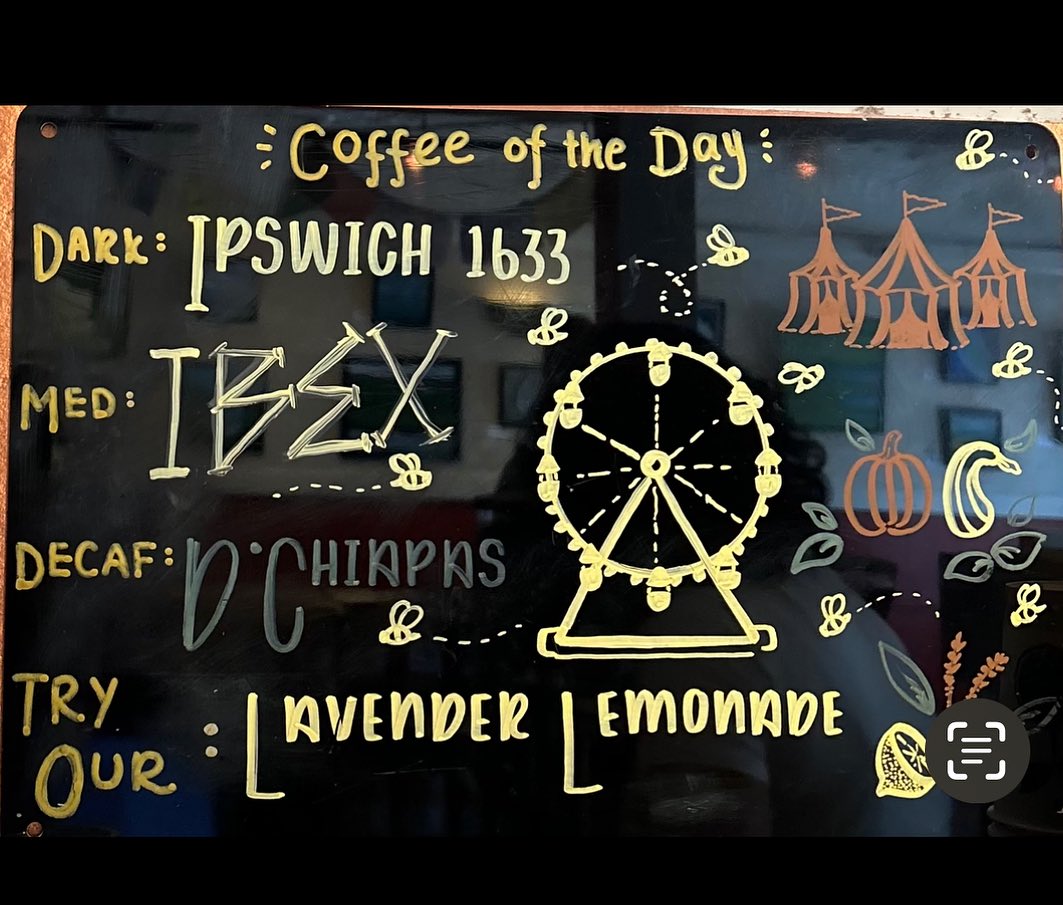 Coffee of the Day
DARK: IPSWICH 1633
MED: IBEX
DECAF: D'CHIAPAS
TRY OUR: LAVENDER LEMONADE